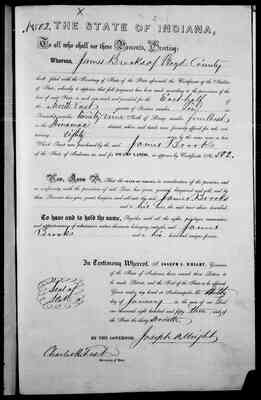 No 182.
THE STATE OF INDIANA,
To all who shall see these Presents, Greeting:
Whereas, James Brooks of Floyd County
hath filed with the Secretary of State of the State aforesaid, the Certificate of the Auditor
of State, whereby it appears that full payment has been made according to the provisions of the
East half of
the North East quarter of Section
Township number twenty nine North of Range number four East
in Winamac district, when said lands were formerly offered for sale, and
containing eighty acres
Which Tract was purchased by the said James Brooks
of the State of Indiana, as and for SWAMP LANDS, as appears by Certificate No. 182.
Now, Know Ye, That the STATE OF INDIANA, in consideration of the premises, and
in conformity with the provisions of said Law, has given, granted, bargained and sold, and by
these Presents does give, grant, bargain and sell unto the said James Brooks
and to his heirs, the said tract above described:
To have and to hold the same, Together with all the rights, privileges, immunities
and appurtenances of whatsoever nature thereunto belonging, unto the said James
Brooks and to his heirs and assigns forever.
In Testimony Whereof, I, JOSEPH A. WRIGHT, Governor
of the State of Indiana, have caused these Letters to
be made Patent, and the Seal of the State to be affixed.
Given under my hand at Indianapolis, the
day of January in the year of our Lord
one thousand eight hundred and fifty three and of
the State the thirty seventh
Seal of
State
BY THE GOVERNOR, Joseph A Wright
Charles H. Test
Secretary of State